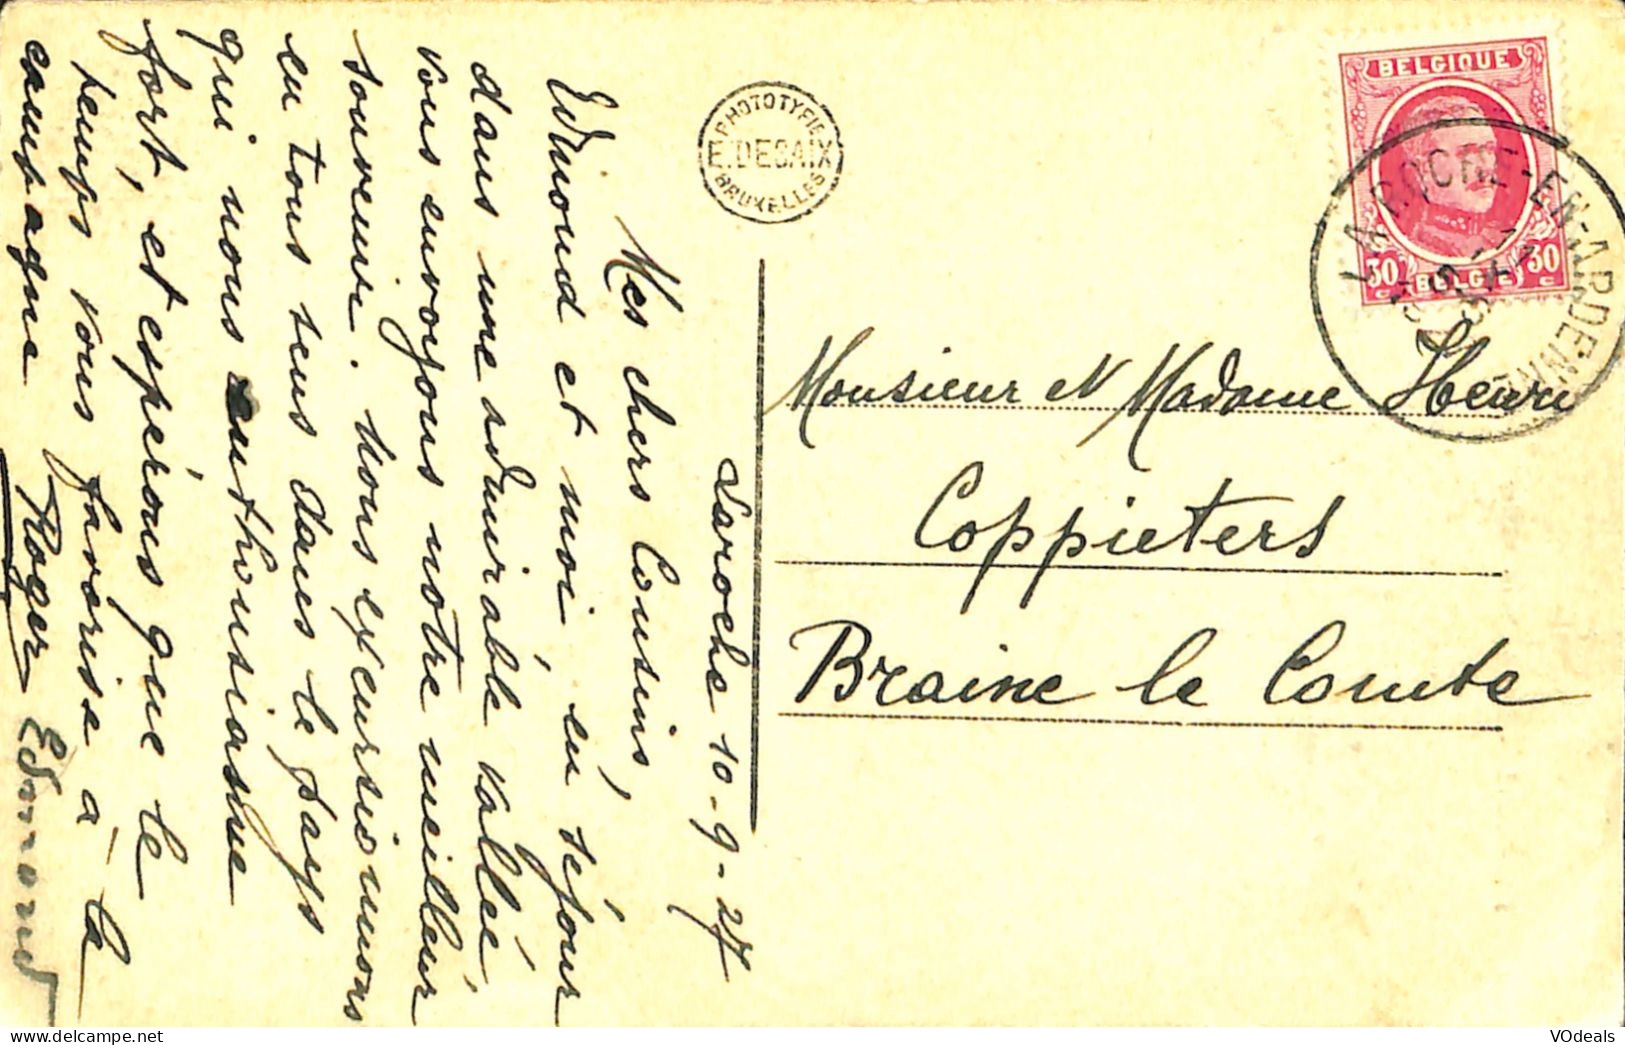 Laroche 10-9-27
Mes chers Cousins,
Edmond et moi, en séjour
dans une admirable vallée
vous envoyons notre meilleur
souvenir. Nous excursionnons
en tous sens dans le pays
qui nous enthousiasme
fort, et espérons que le
temps vous favorise à la
campagne
Roger Edmond
PHOTOTYPIE
E. DESAIX
BRUXELLES
BELGIQUE
30 30
c BELGIE c
LA ROCHE-EN-ARDENNE
Monsieur et Madame Henri
Coppieters
Braine le Comte
VOdeals